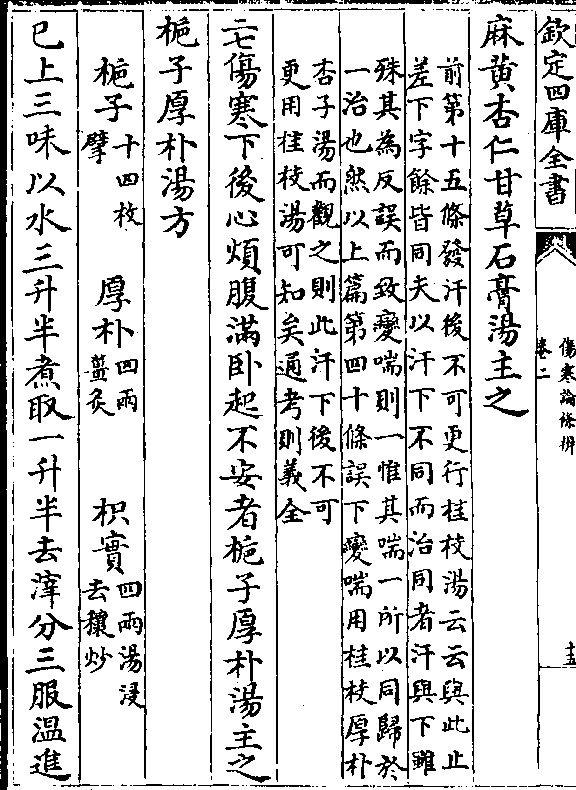 欽定四庫全書
傷寒論條辨
卷二
十五
麻黄杏仁甘草石膏湯主之
前第十五條發汗後不可更行桂枝湯云云與此止
差下字餘皆同夫以汗下不同而治同者汗與下雖
殊其為反誤而致變喘則一惟其喘一所以同歸於
一治也然以上篇第四十條誤下變喘用桂枝厚朴
杏子湯而觀之則此汗下後不可
更用桂枝湯可知矣通考則義全
二七傷寒下後心煩腹滿卧起不安者梔子厚朴湯主之
梔子厚朴湯方
梔子十四枚擘 厚朴四兩薑炙 枳實四兩湯浸去穰炒
已上三味以水三升半煮取一升半去滓分三服溫進